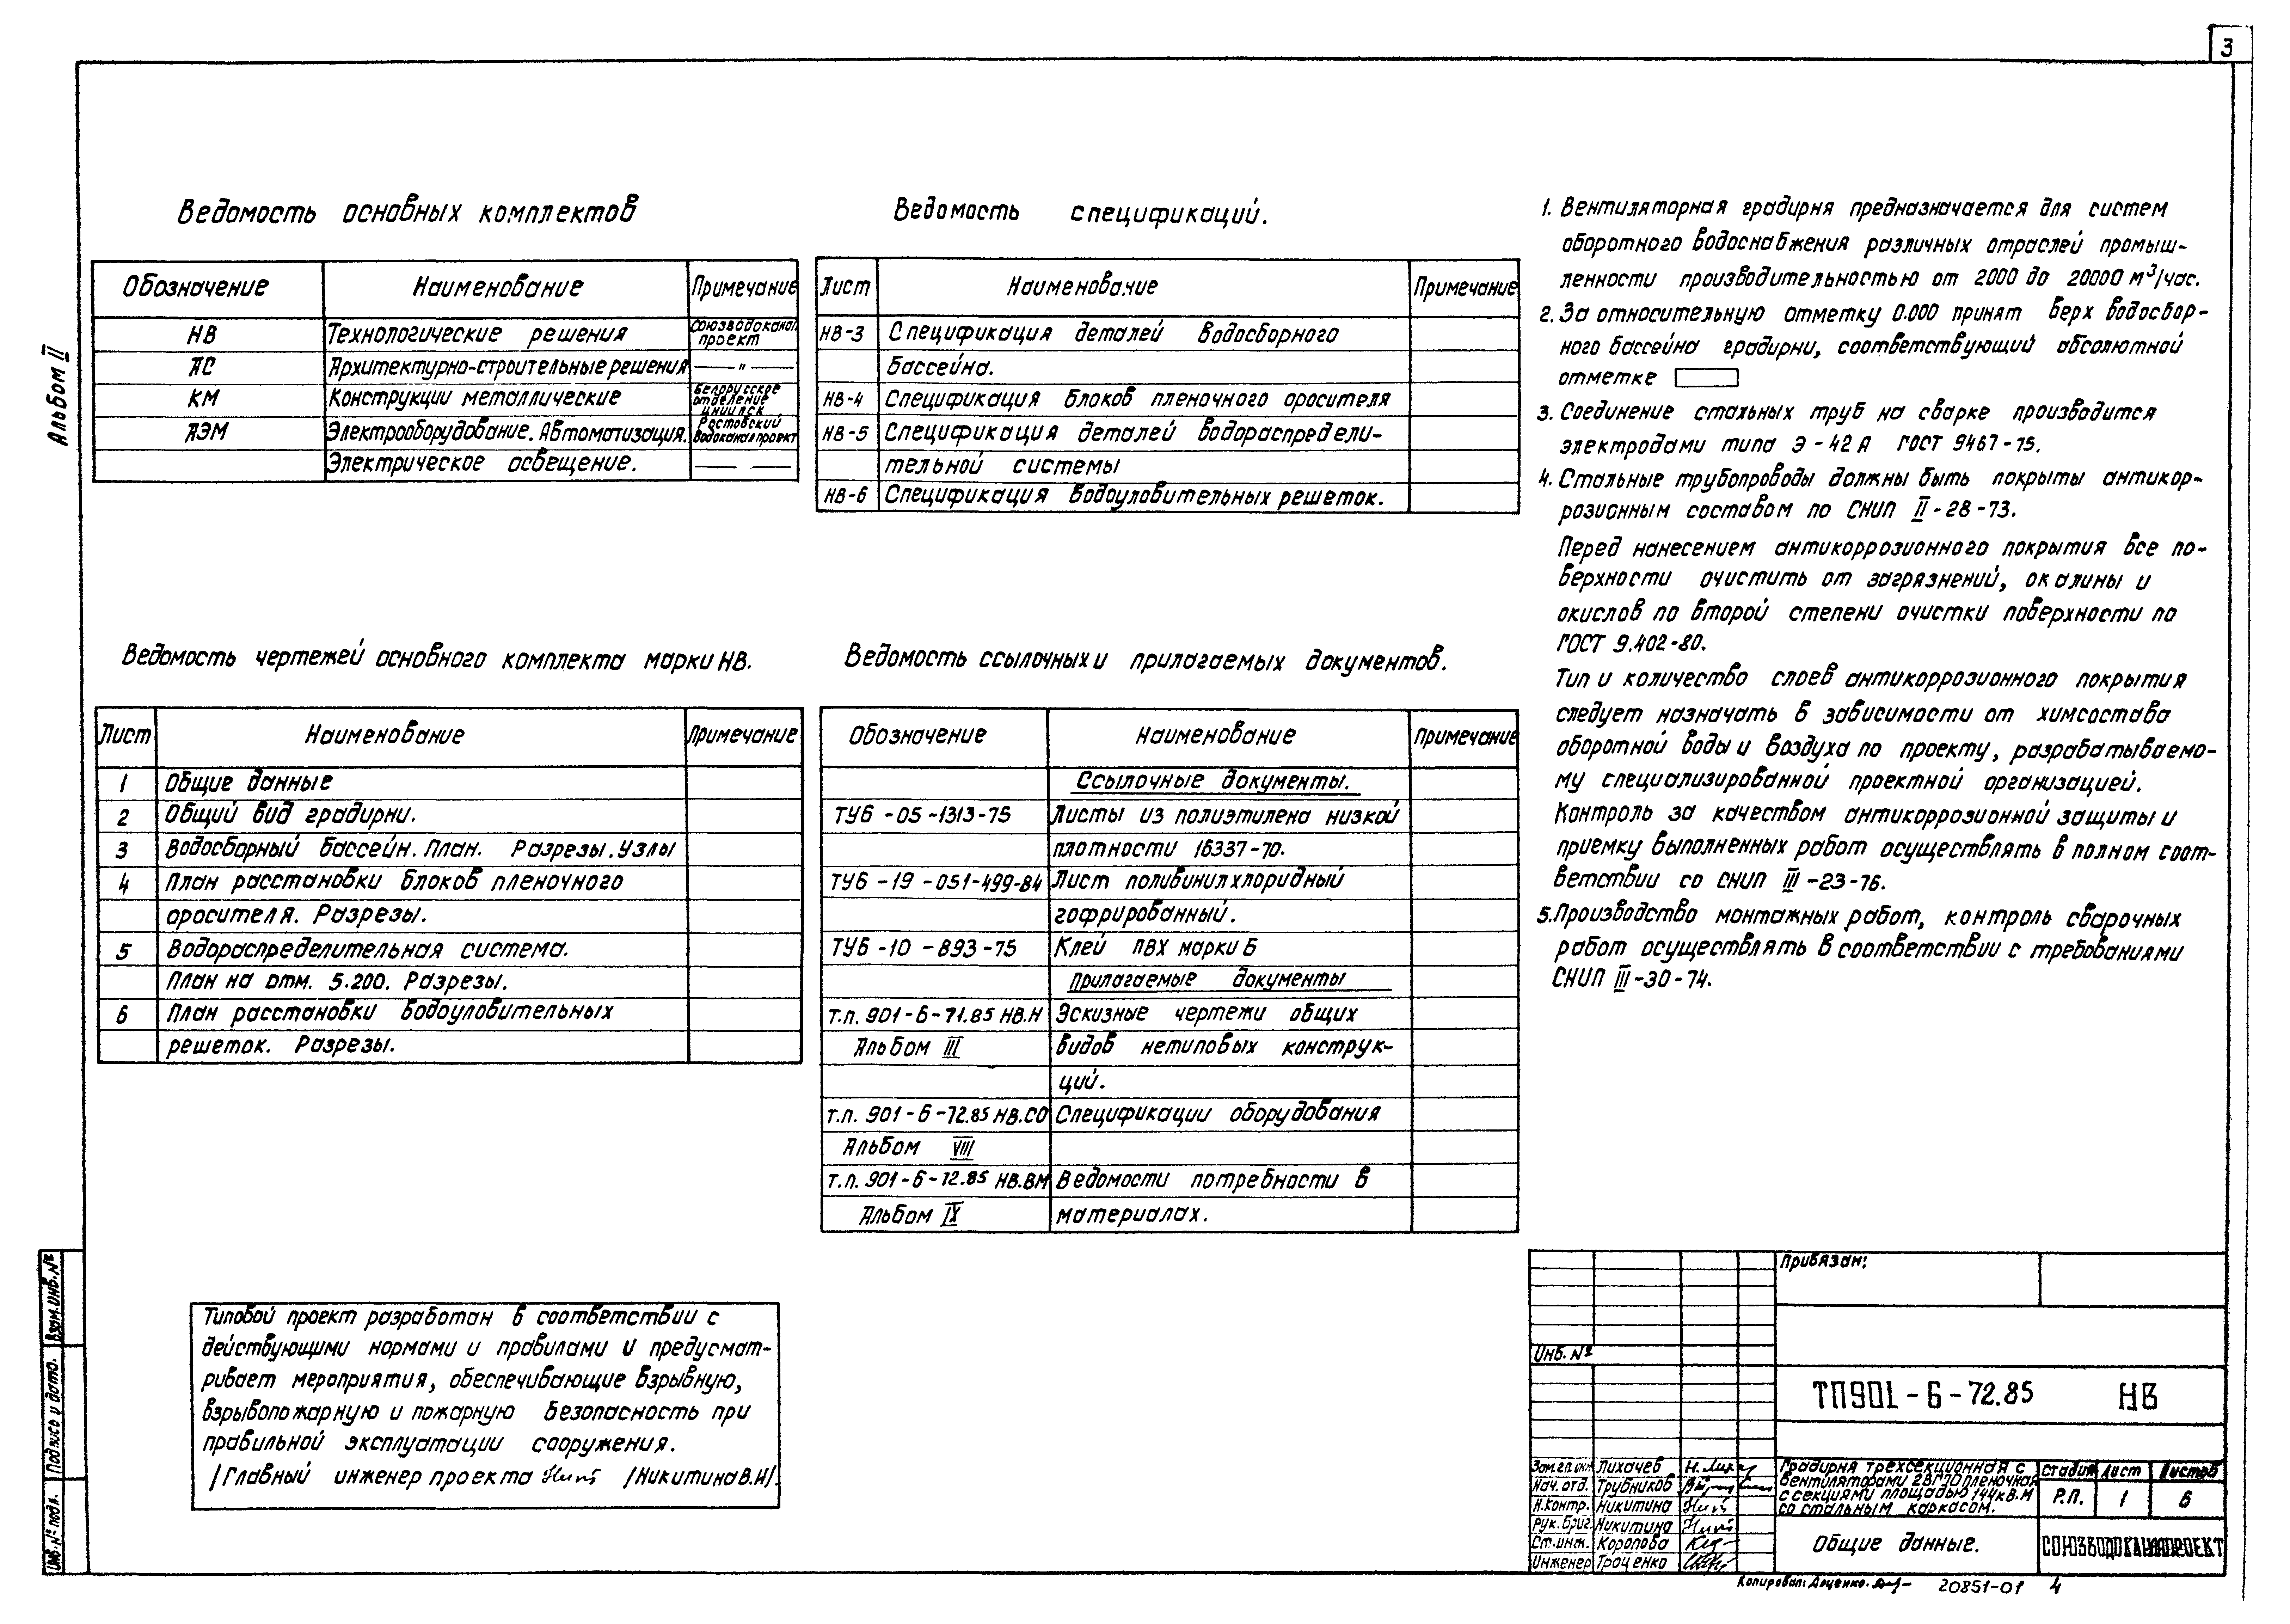 3
Альбом II
Ведомость основных комплектов
Обозначение Наименование Примечание
НВ Технологические решения Союзводоканалпроект
АС Архитектурно-строительные решения — " —
КМ Конструкции металлические Белорусское отделение ЦНИИПСК
АЭМ Электрооборудование. Автоматизация. Ростовский Водоканалпроект
Электрическое освещение. — —
Ведомость спецификаций.
Лист Наименование Примечание
НВ-3 Спецификация деталей водосборного
бассейна.
НВ-4 Спецификация блоков пленочного оросителя
НВ-5 Спецификация деталей водораспредели-
тельной системы
НВ-6 Спецификация водоуловительных решеток.
Ведомость чертежей основного комплекта марки НВ.
Лист Наименование Примечание
1 Общие данные
2 Общий вид градирни.
3 Водосборный бассейн. План. Разрезы. Узлы
4 План расстановки блоков пленочного
оросителя. Разрезы.
5 Водораспределительная система.
План на отм. 5.200. Разрезы.
6 План расстановки водоуловительных
решеток. Разрезы.
Ведомость ссылочных и прилагаемых документов.
Обозначение Наименование Примечание
Ссылочные документы.
ТУ6-05-1313-75 Листы из полиэтилена низкой
плотности 16337-70.
ТУ6-19-051-499-84 Лист поливинилхлоридный
гофрированный.
ТУ6-10-893-75 Клей ПВХ марки Б
Прилагаемые документы
т.п. 901-6-71.85 НВ.Н Эскизные чертежи общих
Альбом III видов нетиповых конструк-
ций.
т.п. 901-6-72.85 НВ.СО Спецификации оборудования
Альбом VIII
т.п. 901-6-72.85 НВ.ВМ Ведомости потребности в
Альбом IX материалах.
1. Вентиляторная градирня предназначается для систем
оборотного водоснабжения различных отраслей промыш-
ленности производительностью от 2000 до 20000 м³/час.
2. За относительную отметку 0.000 принят верх водосбор-
ного бассейна градирни, соответствующий абсолютной
отметке
3. Соединение стальных труб на сварке производится
электродами типа Э-42А ГОСТ 9467-75.
4. Стальные трубопроводы должны быть покрыты антикор-
розионным составом по СНИП II-28-73.
Перед нанесением антикоррозионного покрытия все по-
верхности очистить от загрязнений, окалины и
окислов по второй степени очистки поверхности по
ГОСТ 9.402-80.
Тип и количество слоев антикоррозионного покрытия
следует назначать в зависимости от химсостава
оборотной воды и воздуха по проекту, разрабатываемо-
му специализированной проектной организацией.
Контроль за качеством антикоррозионной защиты и
приемку выполненных работ осуществлять в полном соот-
ветствии со СНИП III-23-76.
5. Производство монтажных работ, контроль сварочных
работ осуществлять в соответствии с требованиями
СНИП III-30-74.
Типовой проект разработан в соответствии с
действующими нормами и правилами и предусмат-
ривает мероприятия, обеспечивающие взрывную,
взрывопожарную и пожарную безопасность при
правильной эксплуатации сооружения.
/Главный инженер проекта /Никитина В.И/.
Взам.инв.№
Подпись и дата.
Инв.№ подл.
Привязан:
Инв.№
ТП901-6-72.85 НВ
Зам.гл.инж Лихачев
Нач. отд. Трубников
Н.контр. Никитина
Рук.бриг. Никитина
Ст.инж. Коропова
Инженер Троценко
Градирня трехсекционная с
вентиляторами 2ВГ70 пленочная
с секциями площадью 144кв.м
со стальным каркасом.
Стадия Лист Листов
Р.П. 1 6
Общие данные.
СОЮЗВОДОКАНАЛПРОЕКТ
Копировал: Доценко. 20851-01 4